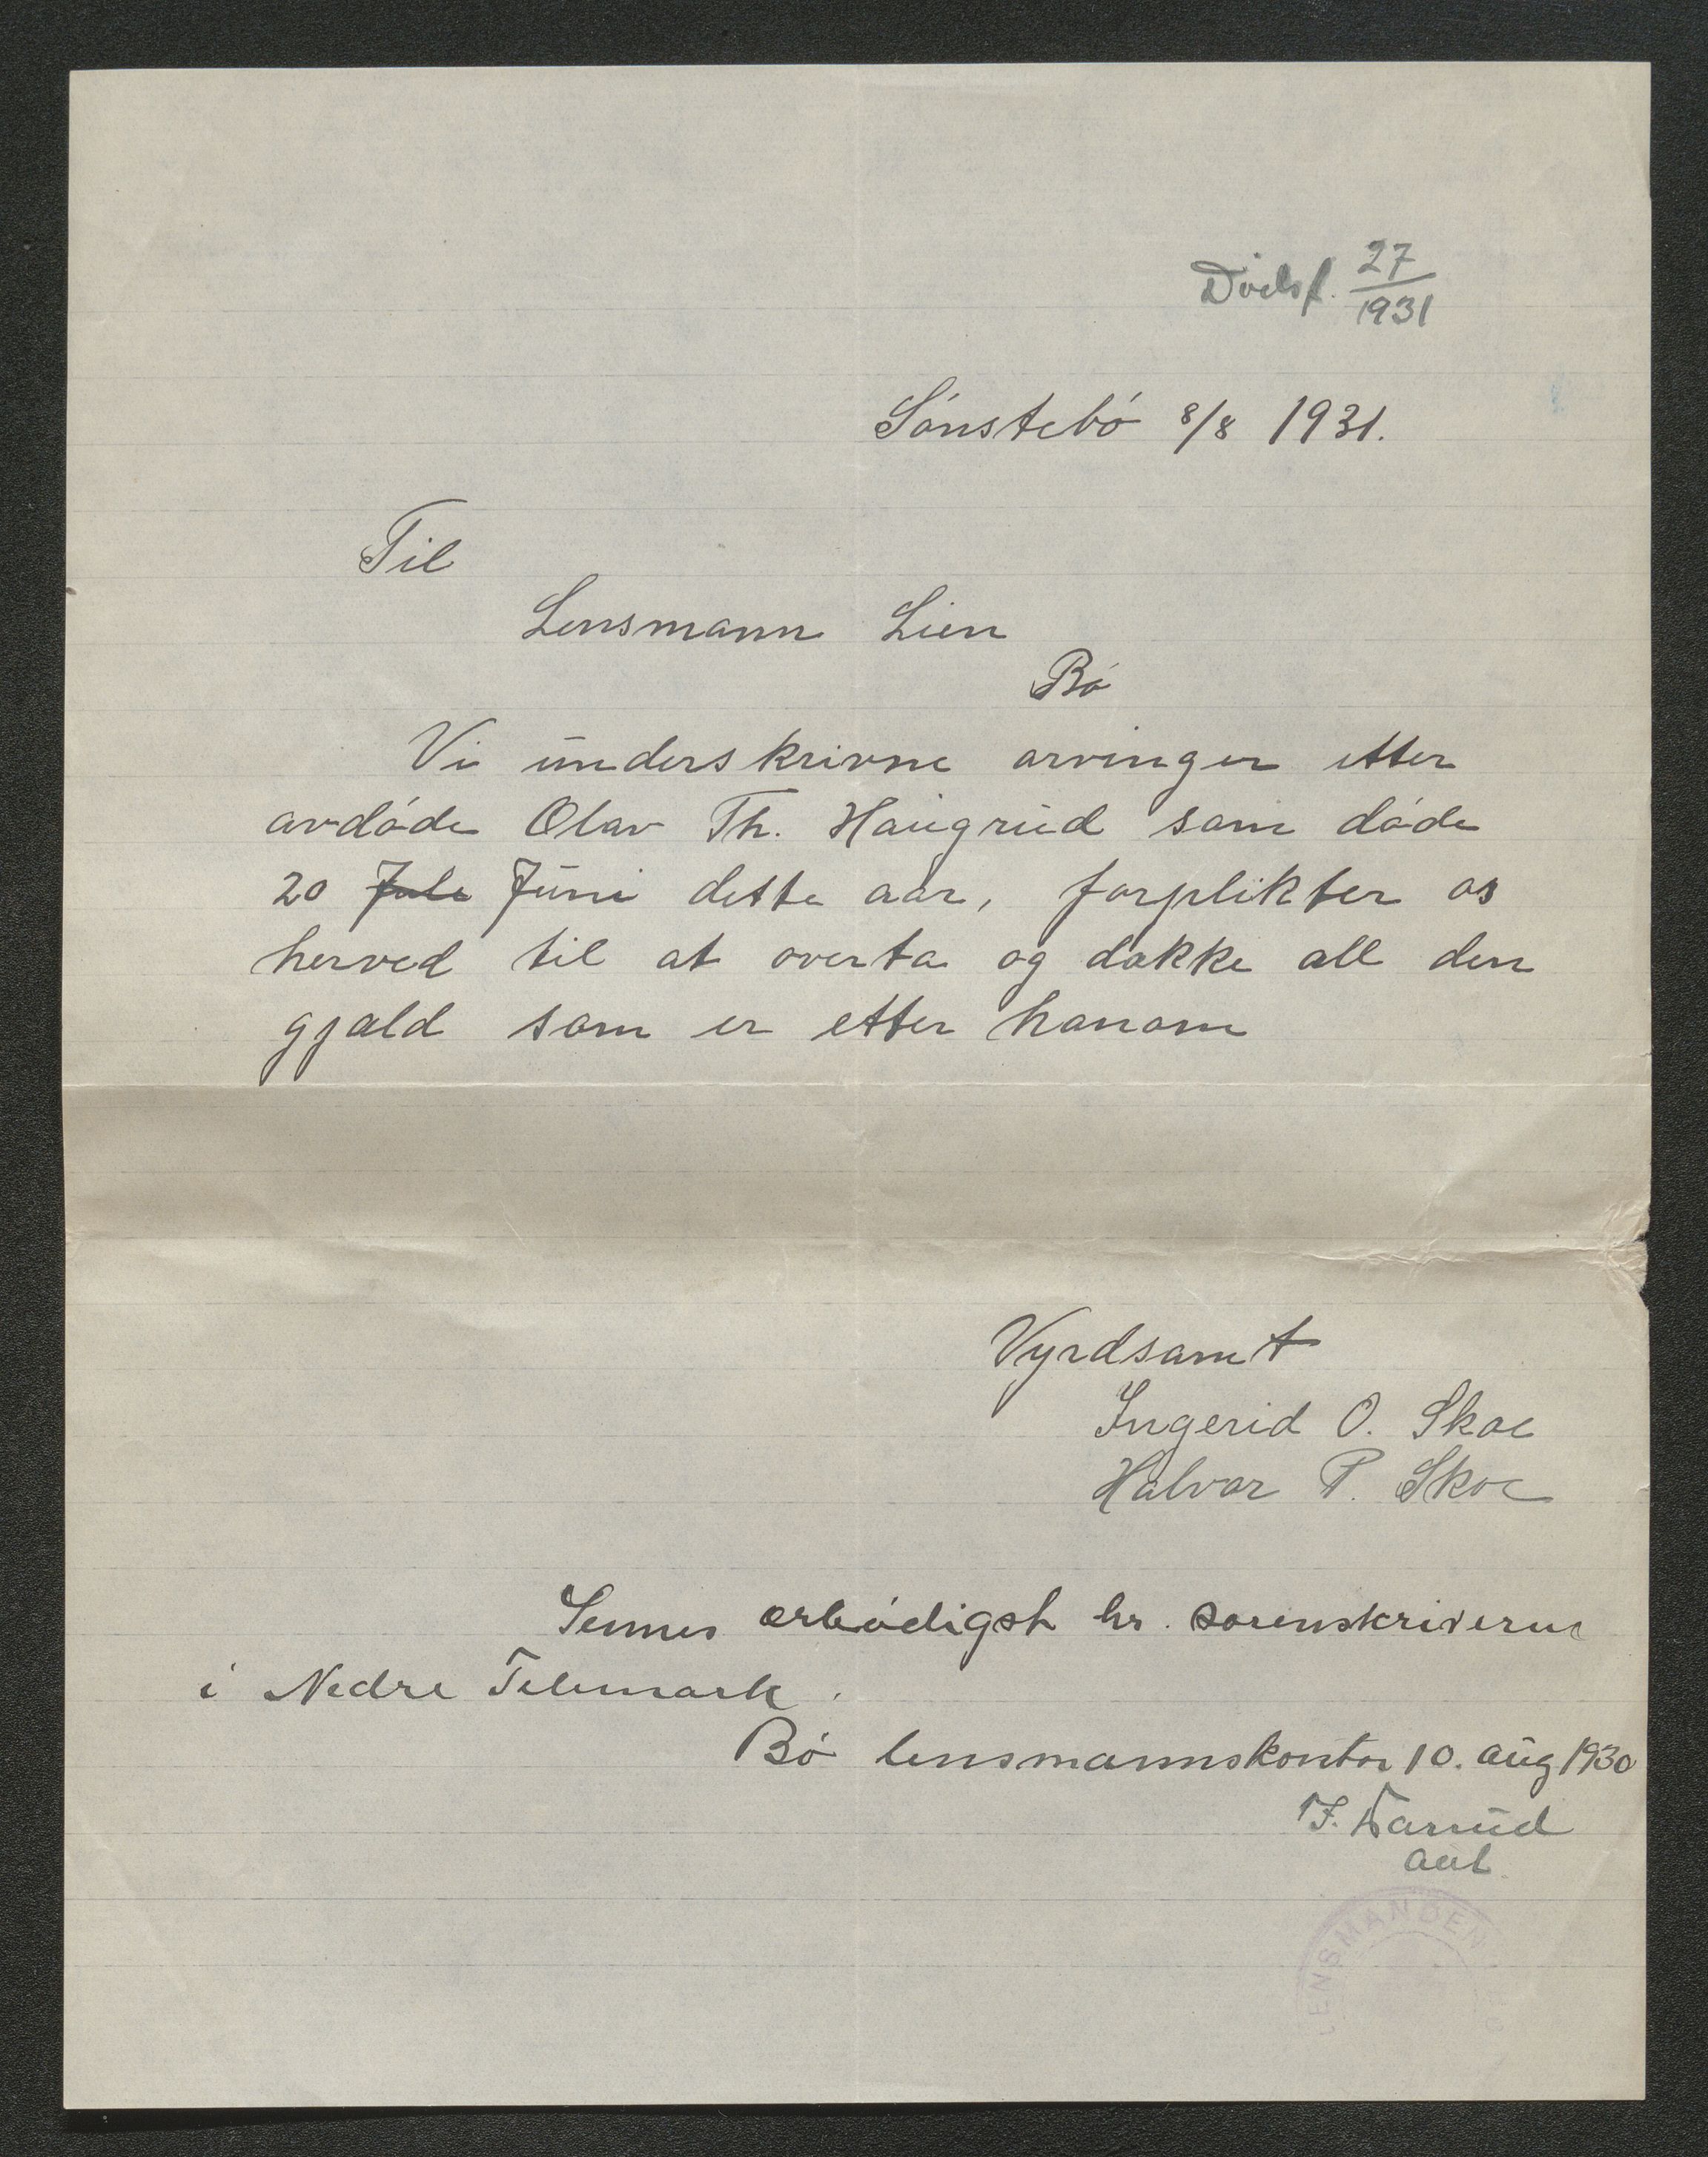 Dødsf. 27/1931
Sónstebó 8/8 1931.
Til
Lensmann Lien
Bó
Vi underskrivne arvinger etter
avdóde Olav Th. Haugrud som dóde
20 Juli Juni dette aar, forplikter os
herved til at overta og dække all den
gjæld som er etter honom
Vyrdsamt
Ingerid O. Skoe
Halvor P. Skoe
Sennes ærbódigst hr. sorenskriveren
i Nedre Telemark.
Bó lensmannskontor 10. aug 1930
aut.
LENSMANDEN